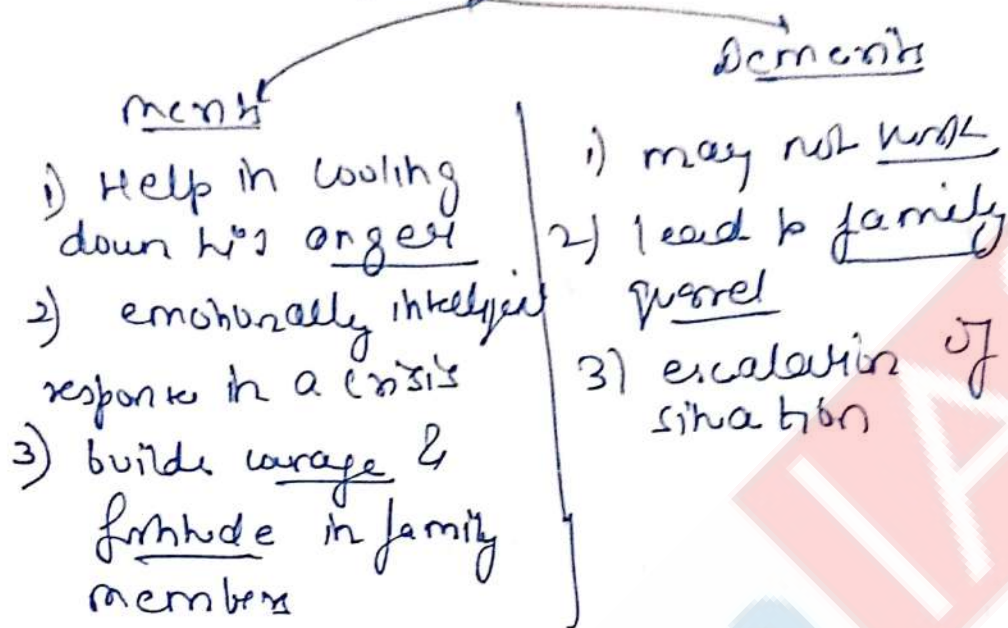 Merits
1) Help in cooling
down his anger
2) emotionally intelligent
response in a crisis
3) builds courage &
fortitude in family
members
Demerits
1) may not work
2) lead to family
quarrel
3) escalation of
situation